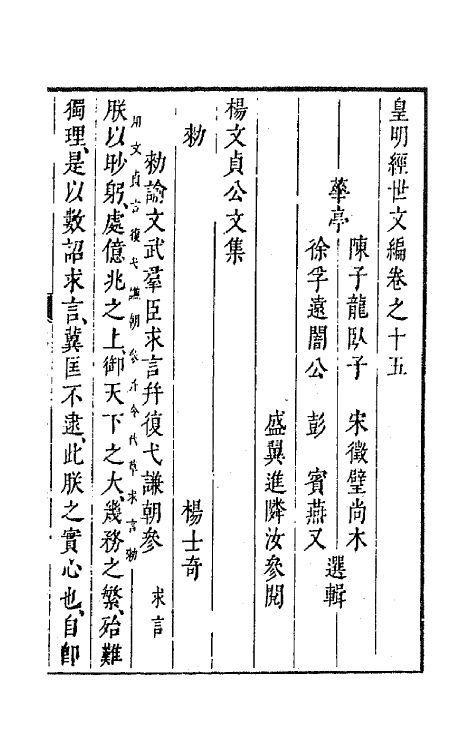 皇明經世文編卷之十五
華亭
陳子龍臥子 宋徵璧尚木
徐孚遠闇公 彭 賓燕又
選輯
盛翼進隣汝參閱
楊文貞公文集
楊士奇
勑
勑諭文武羣臣求言幷復弋謙朝參 求言
用文貞言復弋謙朝參并令代草求言勑
朕以眇躬、處億兆之上、御天下之大、幾務之繁、殆難
獨理、是以數詔求言、冀匡不逮、此朕之實心也、自卽